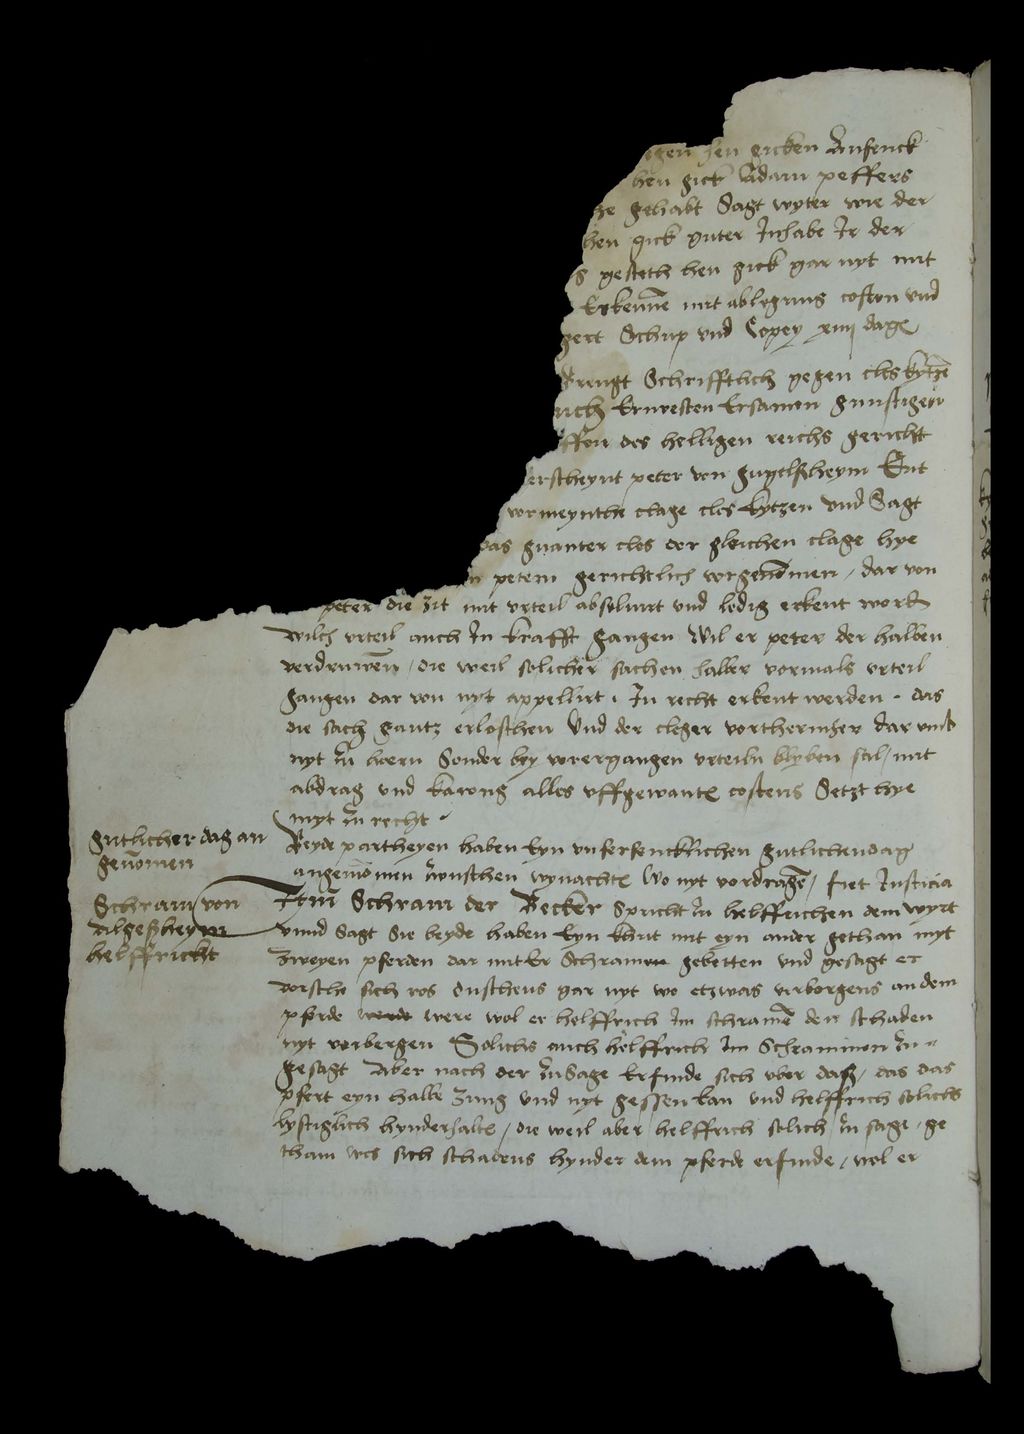 igen hen gicken Ansprück
hen gick Adam peffers
he gehabt Sagt wyter wie der
hen gick guter Inhabe Ir der
s gesteth hen gick gar nyt mit
Erkennē mit ablegung costen vnd
gert Schup vnd Copey xiiij dage
Bringt Schrifftlich gegen cles kytzē
uch Ernvesten Ersamen gunstigen
ffen des helligen reichs gericht
erscheynt peter von gugelßheym Ent
vormeynthe clage cles kytzen vnd Sagt
das gnanter cles der gleichen clage hye
n petern gerichtlich vorgenomen / dar von
peter die zit mit vrteil absoluirt vnd ledig erkent word
wilch vrteil auch In krafft gangen Wil er peter der halben
verdruwen / die weil solicher sachen halber vormals vrteil
gangen dar von nyt appellirt / In recht erkent werden / das
die sach gantz erloschen Vnd der cleger vortheringer dar vmb
nyt zu hoern Sonder bey vorergangen vrteiln blyben sal / mit
abdrag vnd karong alles vffgewantē costens Setzt hye
myt zu recht
gutlicher dag an
genomen
Beyde partheyen haben Eyn vnferfencklichen gutlichen dag
angenomen zwuschen wynachtē Wo nyt vordragē / fiet Justicia
Schram von
Algeßheym
helffricht
Itm̄ Schram der Becker Spricht zu helffrichen dem wyrt
vnnd Sagt Sie beyde haben Eyn kaut mit eyn ander gethan myt
zweyen pferden dar mit Er Schramen gebetten vnd gesagt er
vorsehe sich ros duschens gar nyt wo etzwas verborgens an dem
pferde were wol er helffrich Im schramē den schaden
nyt verbergen Solichs auch helffrich Im Schrammen zu
gesagt Aber nach der zu Sage Erfinde sich vber daß / das das
pfert eyn halbe zung vnd nyt gessen kan vnd helffrich solichs
lystiglich hynderhaltē / die weil aber helffrich solich zu sage / ge
tham wes sich schadens hynder dem pferde erfinde / wol er